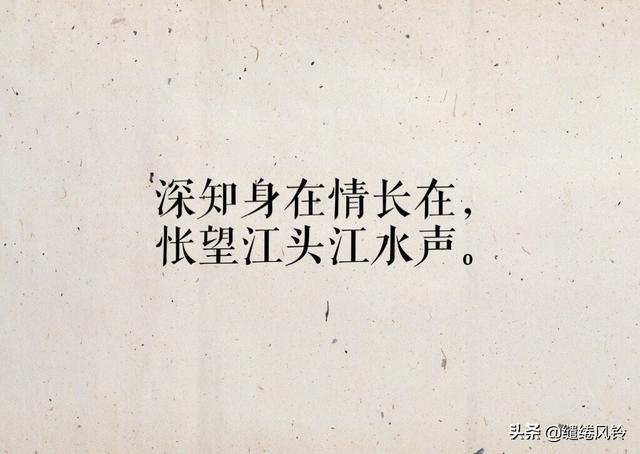 深知身在情长在，
怅望江头江水声。
头条 @缱绻风铃